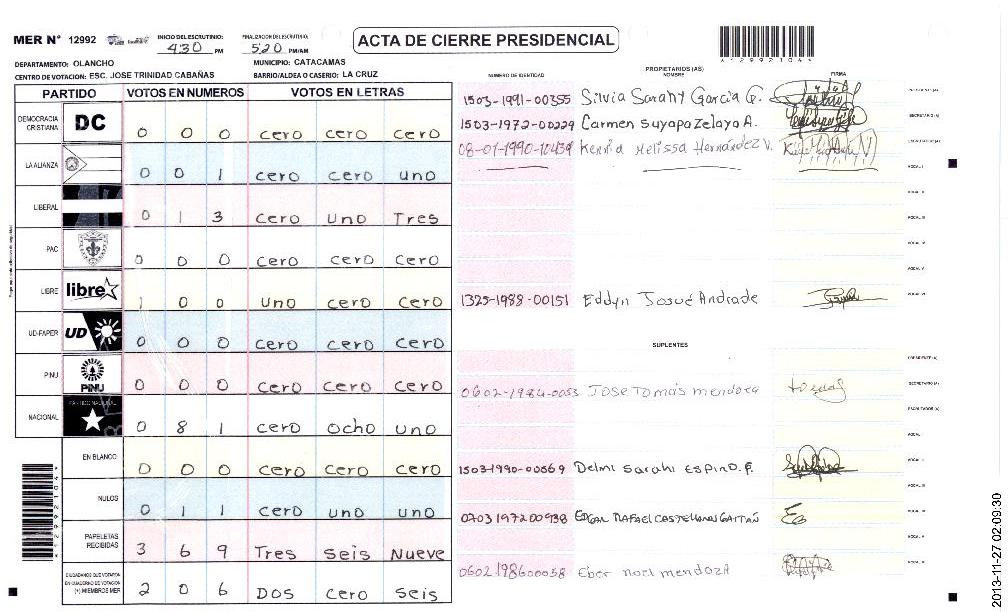 MER Nº 12992
INICIO DEL ESCRUTINIO: 4:30 PM
FINALIZACION DEL ESCRUTINIO: 5:20 PM/AM
ACTA DE CIERRE PRESIDENCIAL
*12992104*
DEPARTAMENTO: OLANCHO
MUNICIPIO: CATACAMAS
CENTRO DE VOTACION: ESC. JOSE TRINIDAD CABAÑAS
BARRIO/ALDEA O CASERIO: LA CRUZ
PARTIDO VOTOS EN NUMEROS VOTOS EN LETRAS
DEMOCRACIA CRISTIANA DC 0 0 0 cero cero cero
LA ALIANZA 0 0 1 cero cero uno
LIBERAL 0 1 3 cero uno Tres
PAC 0 0 0 cero cero cero
LIBRE libre 1 0 0 uno cero cero
UD-FAPER UD 0 0 0 cero cero cero
PINU PINU 0 0 0 cero cero cero
NACIONAL PARTIDO NACIONAL 0 8 1 cero ocho uno
EN BLANCO 0 0 0 cero cero cero
NULOS 0 1 1 cero uno uno
PAPELETAS RECIBIDAS 3 6 9 Tres seis Nueve
CIUDADANOS QUE VOTARON EN CUADERNO DE VOTACION (+) MIEMBROS MER 2 0 6 Dos cero seis
PROPIETARIOS (AS)
NUMERO DE IDENTIDAD NOMBRE FIRMA
1503-1991-00355 Silvia Sarahy Garcia G. PRESIDENTE (A)
1503-1972-00229 Carmen Suyapa Zelaya A. SECRETARIO (A)
08-01-1990-10439 Kennia Melissa Hernández V. ESCRUTADOR (A)
VOCAL I
VOCAL II
VOCAL III
VOCAL IV
VOCAL V
1325-1988-00151 Eddyn Josué Andrade VOCAL VI
SUPLENTES
PRESIDENTE (A)
0602-1984-0053 Jose Tomás mendoza SECRETARIO (A)
ESCRUTADOR (A)
VOCAL I
1503-1990-00669 Delmi Sarahi Espino. F. VOCAL II
VOCAL III
0703197200938 Edgar Rafael Castellanos Gaitán VOCAL IV
VOCAL V
0602198600058 Eber noel mendoza VOCAL VI
2013-11-27 02:09:30